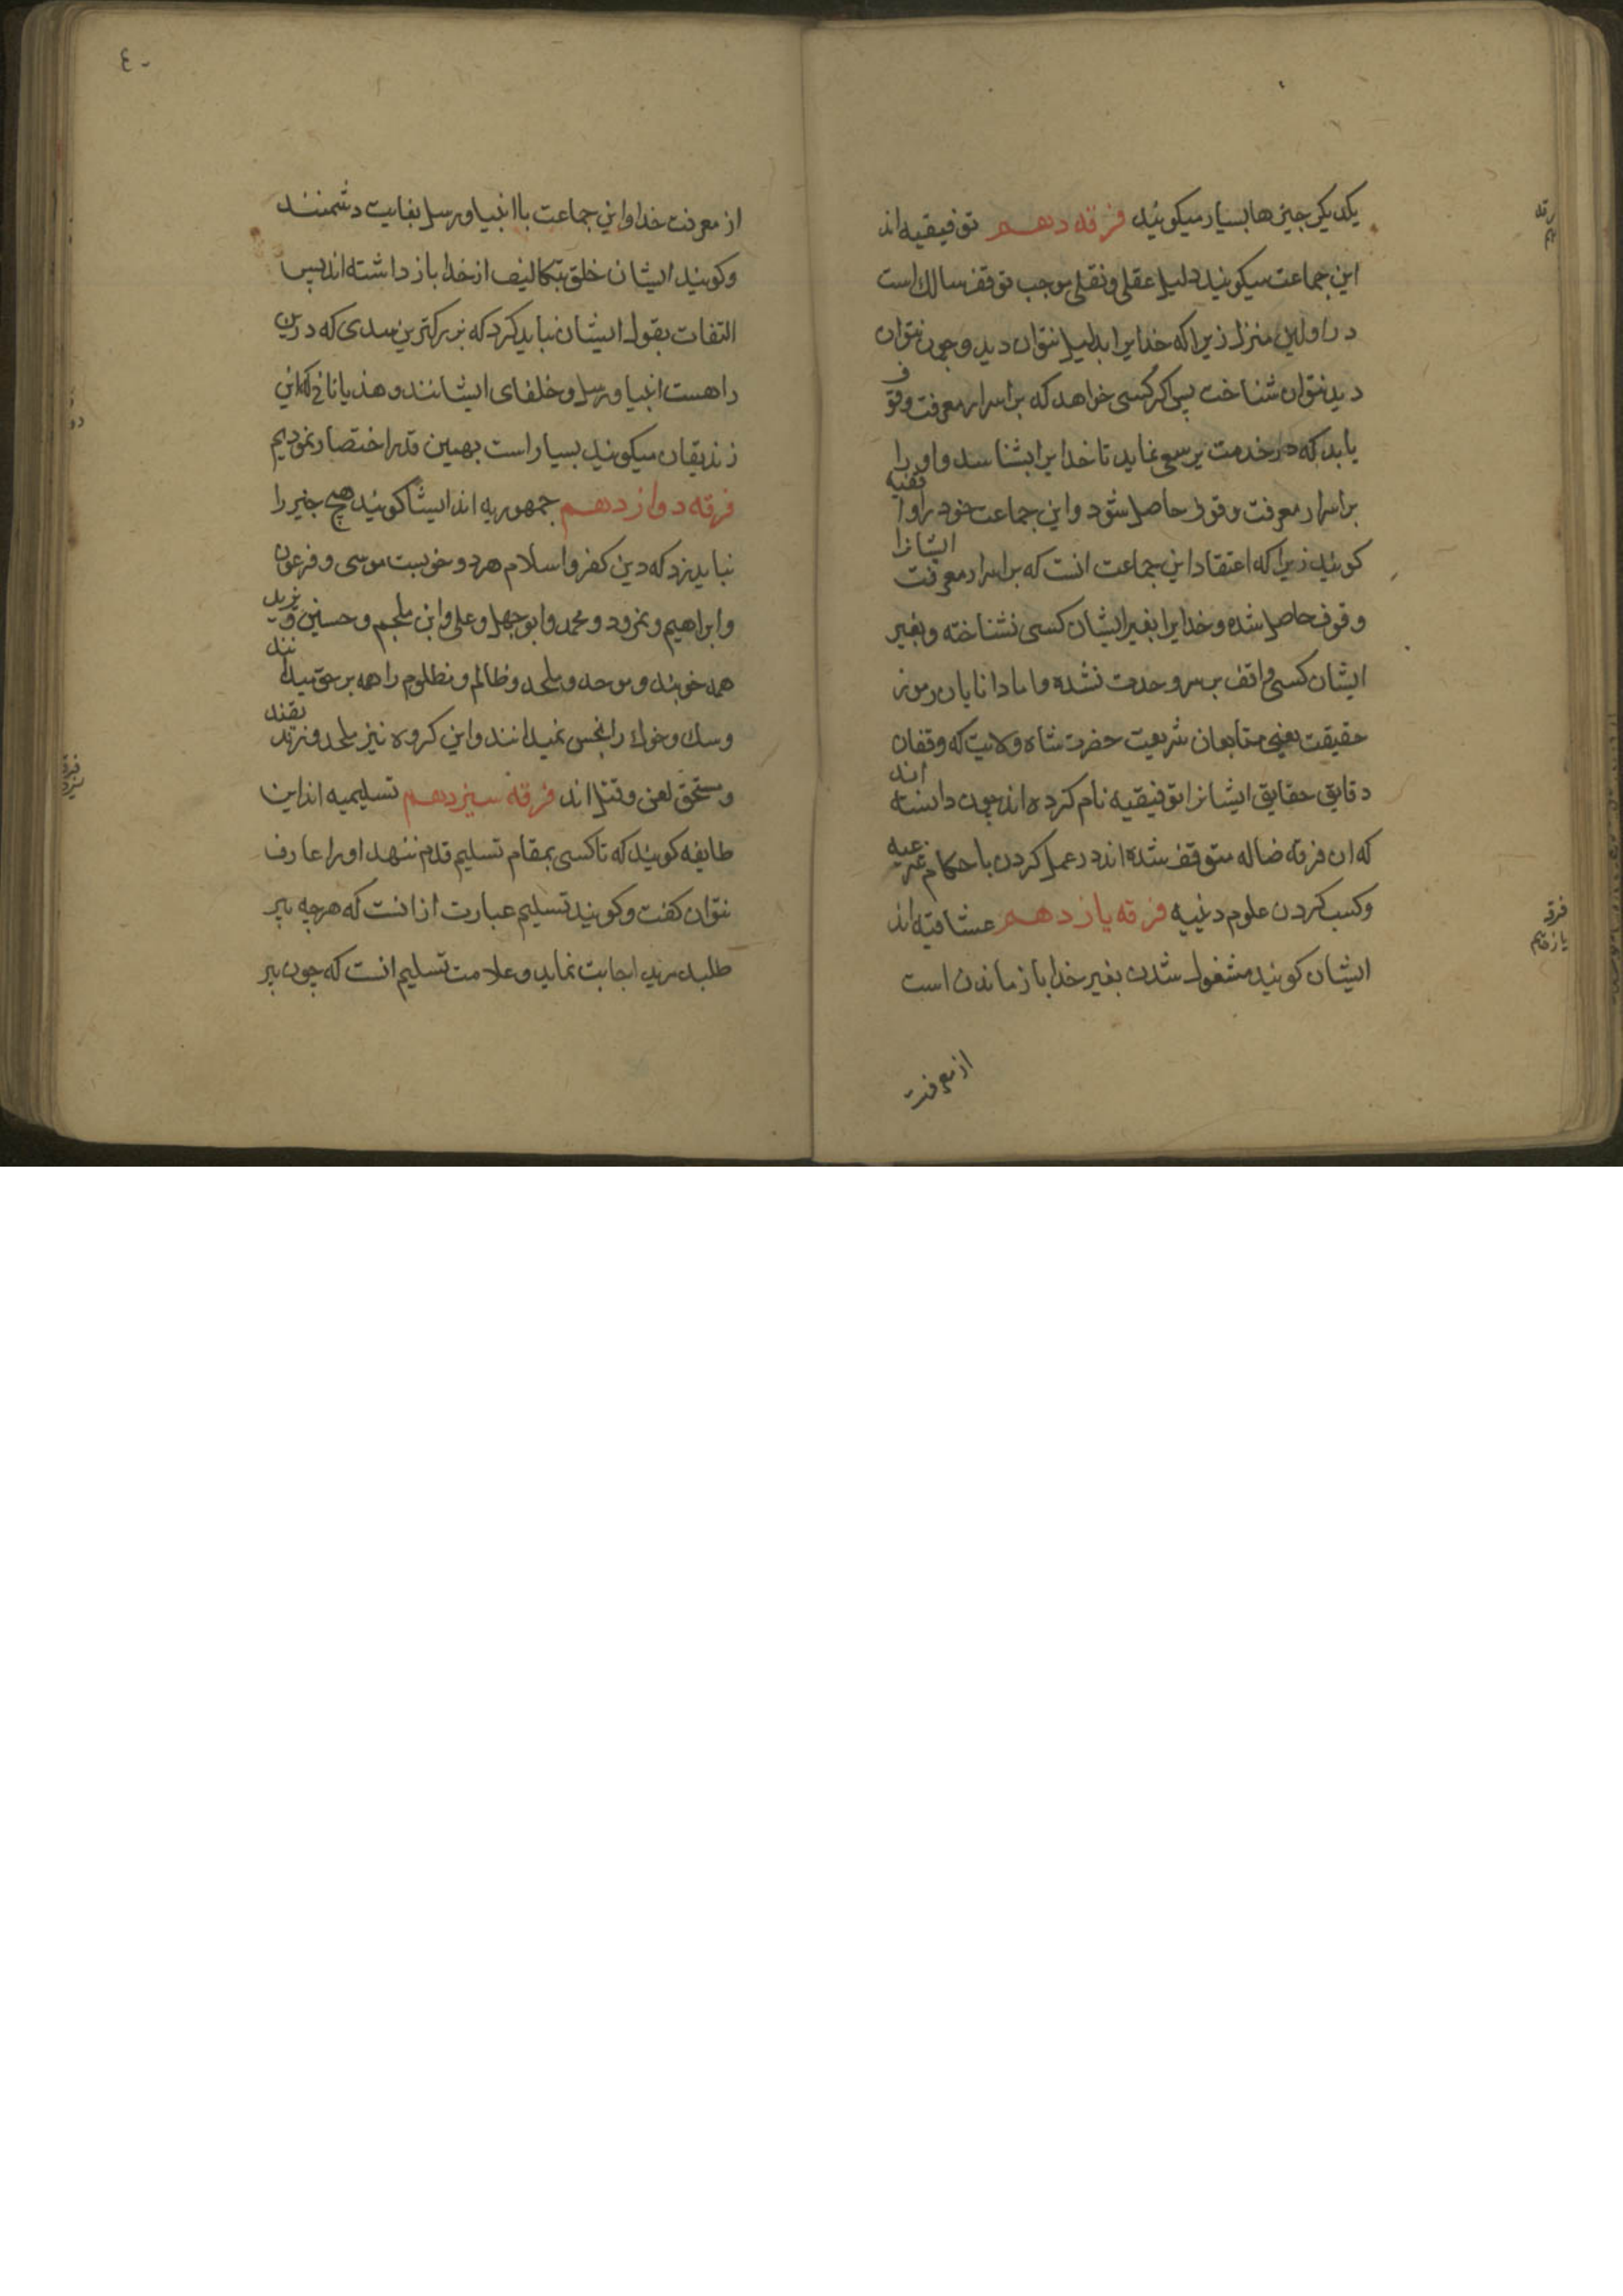 یکدیکر جیزها بسیار میکویند فرقه دهم توفیقیه اند
این جماعت میکویند دلیل عقلی و نقلی موجب توقف سالک است
در اولین منزل زیرا که خدایرا بدلیل نتوان دید و چون نتوان
دید نتوان شناخت پس اکر کسی خواهد که بر اسرار معرفت وقوف
یابد که در خدمت پیر سعی نماید تا خدایرا بشناسد و او را
بر اسرار معرفت وقوف حاصل شود و این جماعت خود را واقفیه
کویند زیرا که اعتقاد این جماعت انست که بر اسرار معرفت ایشانرا
وقوف حاصل شده و خدایرا بغیر ایشان کسی نشناخته و بغیر
ایشان کسی واقف بر سر وحدت نشده و اما دانایان رموز
حقیقت یعنی متابعان شریعت حضرت شاه ولایت که وقفان
دقایق حقایق ایشانرا توفیقیه نام کرده اند چون دانسته اند
که ان فرقه ضاله متوقف شده اند در عمل کردن با حکام شرعیه
وکسب کردن علوم دینیه فرقه یازدهم عشاقیه اند
ایشان کویند مشغول شدن بغیر خدا باز ماندن است
از معرفت
فرقه
یازدهم
٤۰
از معرفت خدا و این جماعت با انبیا و رسل بغایت دشمنند
وکویند ایشان خلق بتکالیف از خدا باز داشته اند پس
التفات بقول ایشان نباید کرد که بزرکترین سدی که درین
راهست انبیا و رسل و خلفای ایشانند و هذیاناتی که این
زندیقان میکویند بسیار است بهمین قدر اختصار نمودیم
فرقه دوازدهم جمهوریه اند ایشان کویند هیچ جیز را
نباید زد که دین کفر و اسلام هر دو خوبست موسی و فرعون
وابراهیم و نمرود و محمد و ابوجهل و علی و ابن ملجم و حسین و یزید
همه خوبند و موحد و ملحد و ظالم و مظلوم را همه بر حق میدانند
وسک و خوک را نجس نمیدانند و این کروه نیز ملحد و زندیقند
ومستحق لعن و قتل اند فرقه سیزدهم تسلیمیه اند این
طایفه کویند که تا کسی بمقام تسلیم قدم ننهد او را عارف
نتوان کفت و کویند تسلیم عبارت از انست که هر چه پیر
طلبد مرید اجابت نماید و علامت تسلیم انست که چون پیر